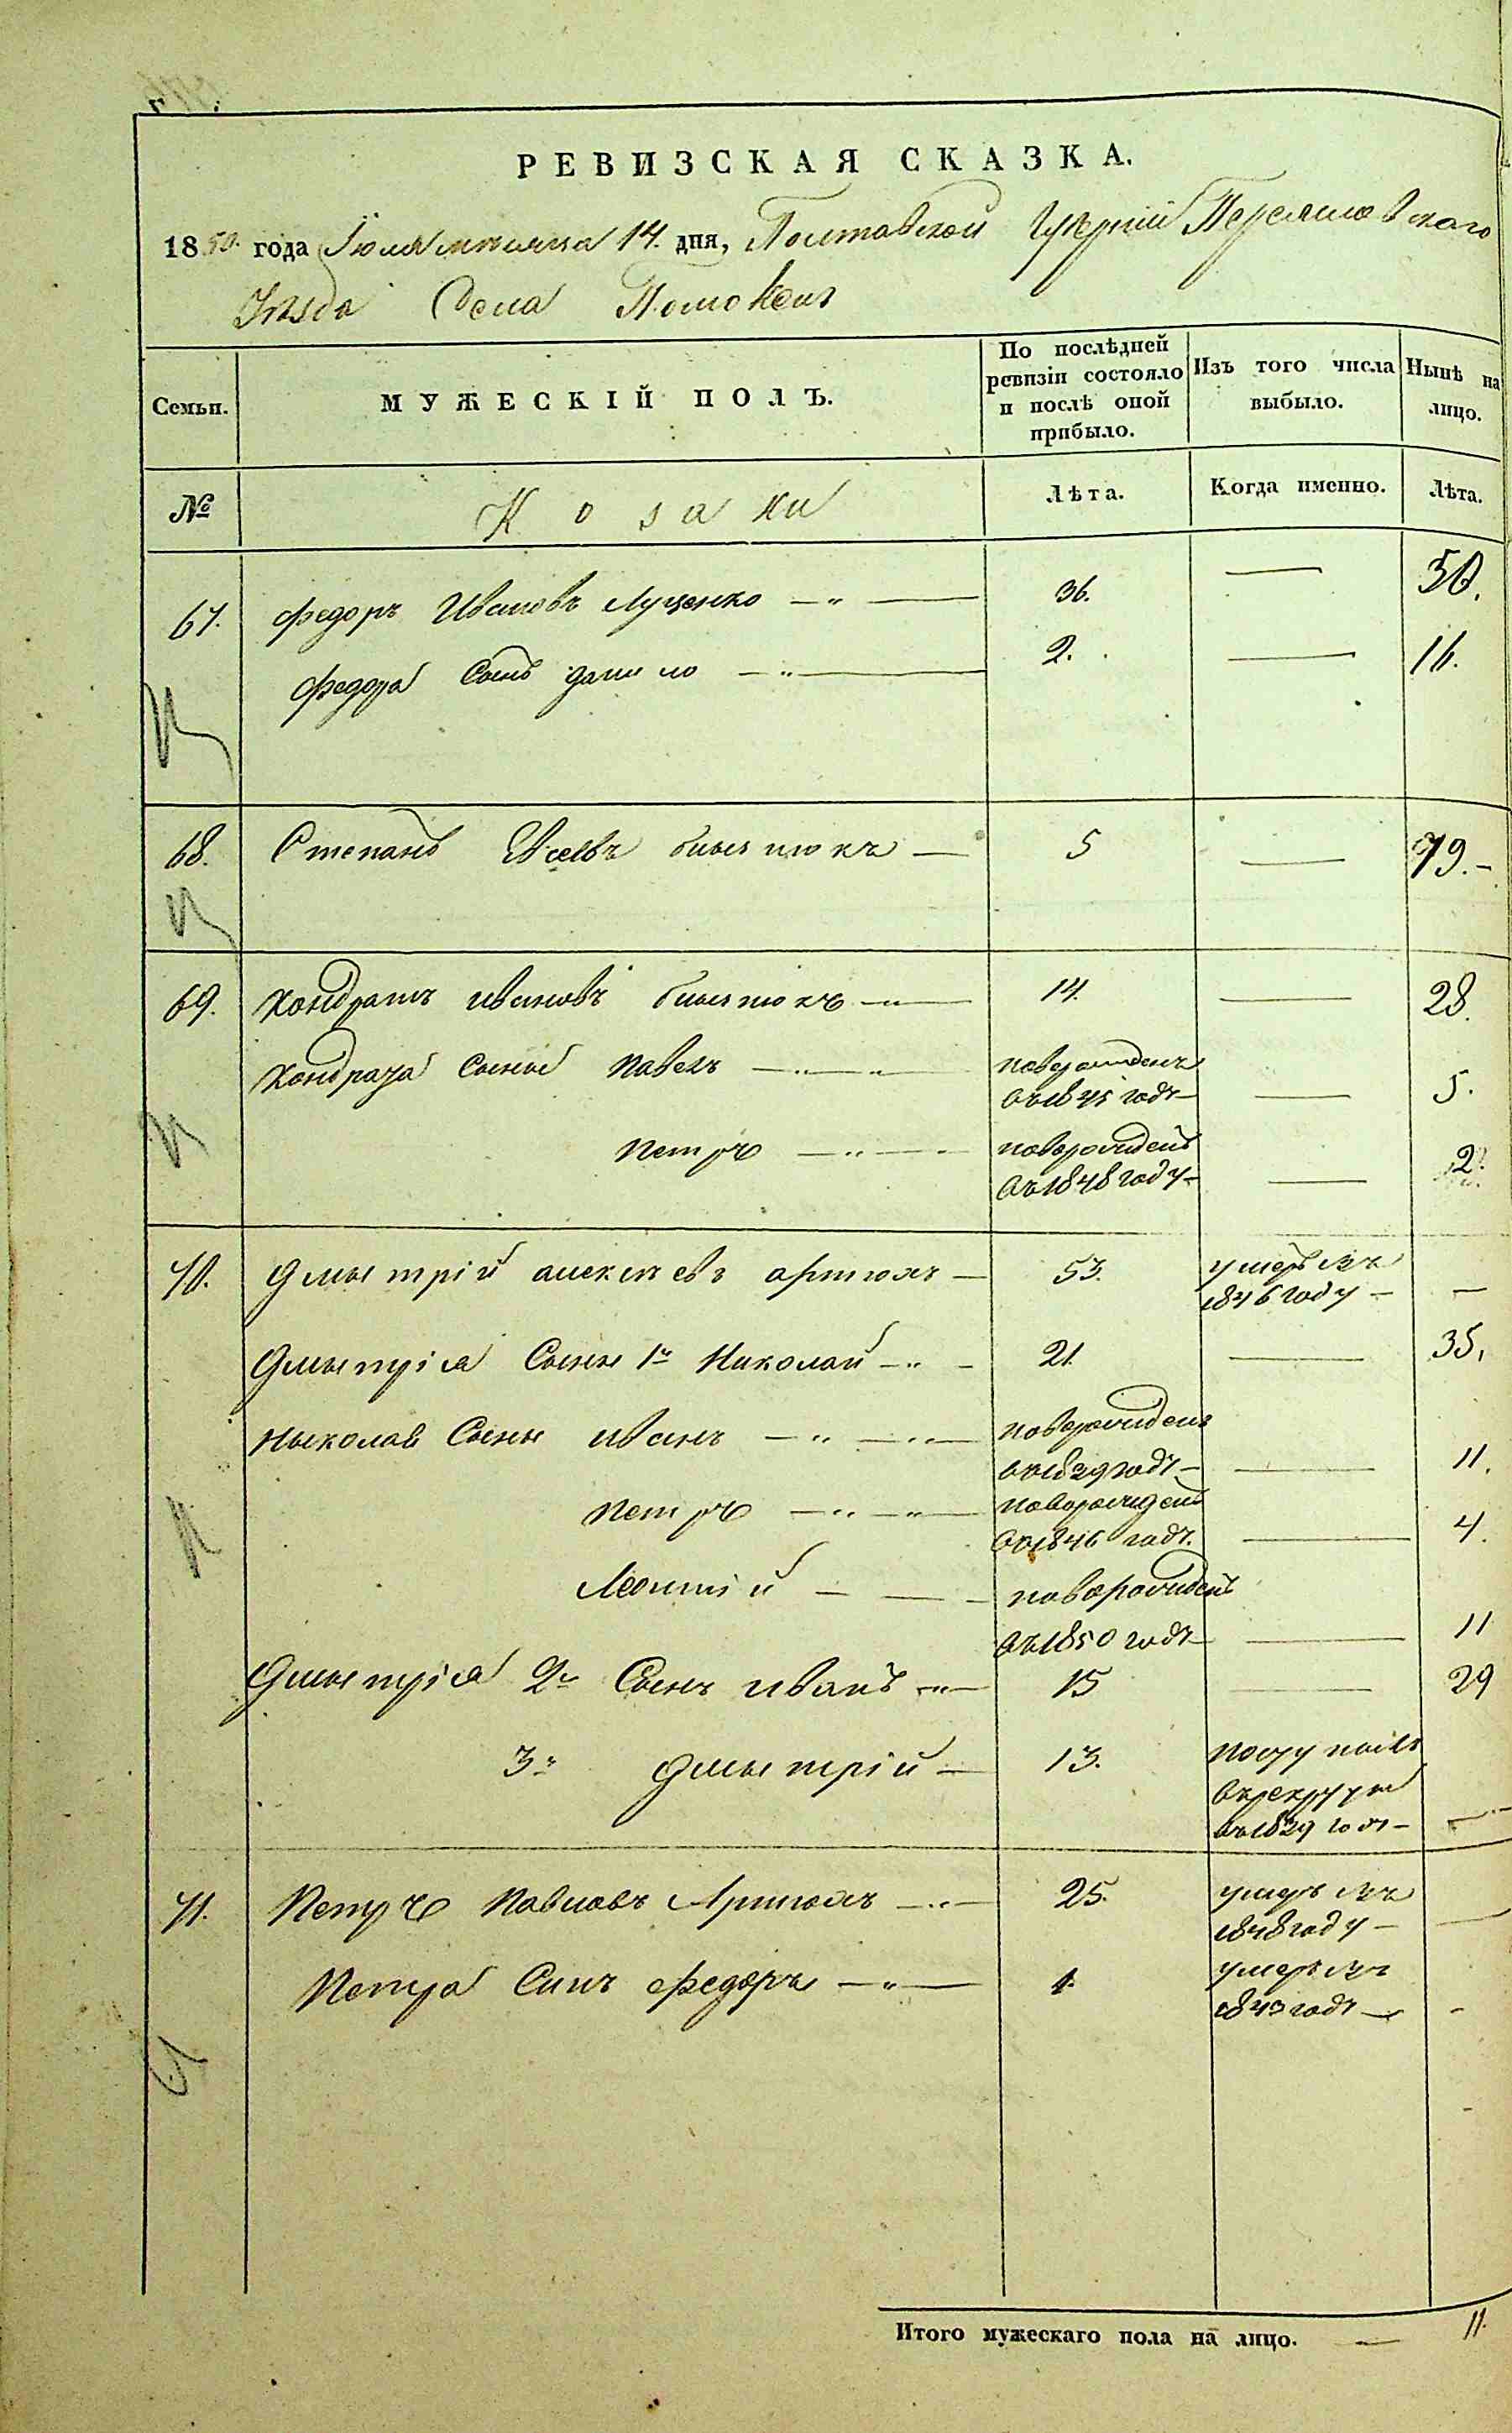 РЕВИЗСКАЯ СКАЗКА.
1850. года Іюля мѣсяца 14. дня, Полтавской Губерніи Переяславского
Уѣзда Села Помоклей
Семьи. МУЖЕСКІЙ ПОЛЪ. По послѣдней ревизіи состояло и послѣ оной прибыло. Изъ того числа выбыло. Нынѣ на лицо.
№ Козаки Лѣта. Когда именно. Лѣта.
67. Федоръ Ивановъ Луценко 36. — 50.
Федора Сынъ Данило 2. — 16.
68. Степанъ 5 — 19.
69. Кондратъ Ивановъ 14. — 28.
Кондрата Сыны Павелъ новорожденъ въ 1845 годѣ — 5.
Петръ новорожденъ въ 1848 году — 2.
70. Дмытрій Алексѣевъ Артюхъ — 53. умеръ въ 1846 году — —
Дмытрія Сыны 1й Николай 21. — 35.
Ныколая Сыны Иванъ новорожденъ въ 1839 годѣ — 11.
Петръ новорожденъ въ 1846 годѣ. — 4.
Леонтій новорожденъ въ 1850 годѣ — 11
Дмытрія 2й Сынъ Иванъ 15 — 29
3й Дмытрій — 13. поступилъ въ рекруты въ 1839 годѣ — —
71. Петръ Павловъ Артюхъ 25. умеръ въ 1848 году — —
Петра Сынъ Федоръ 1. умеръ въ 1843 годѣ — -
Итого мужескаго пола на лицо. — 11.